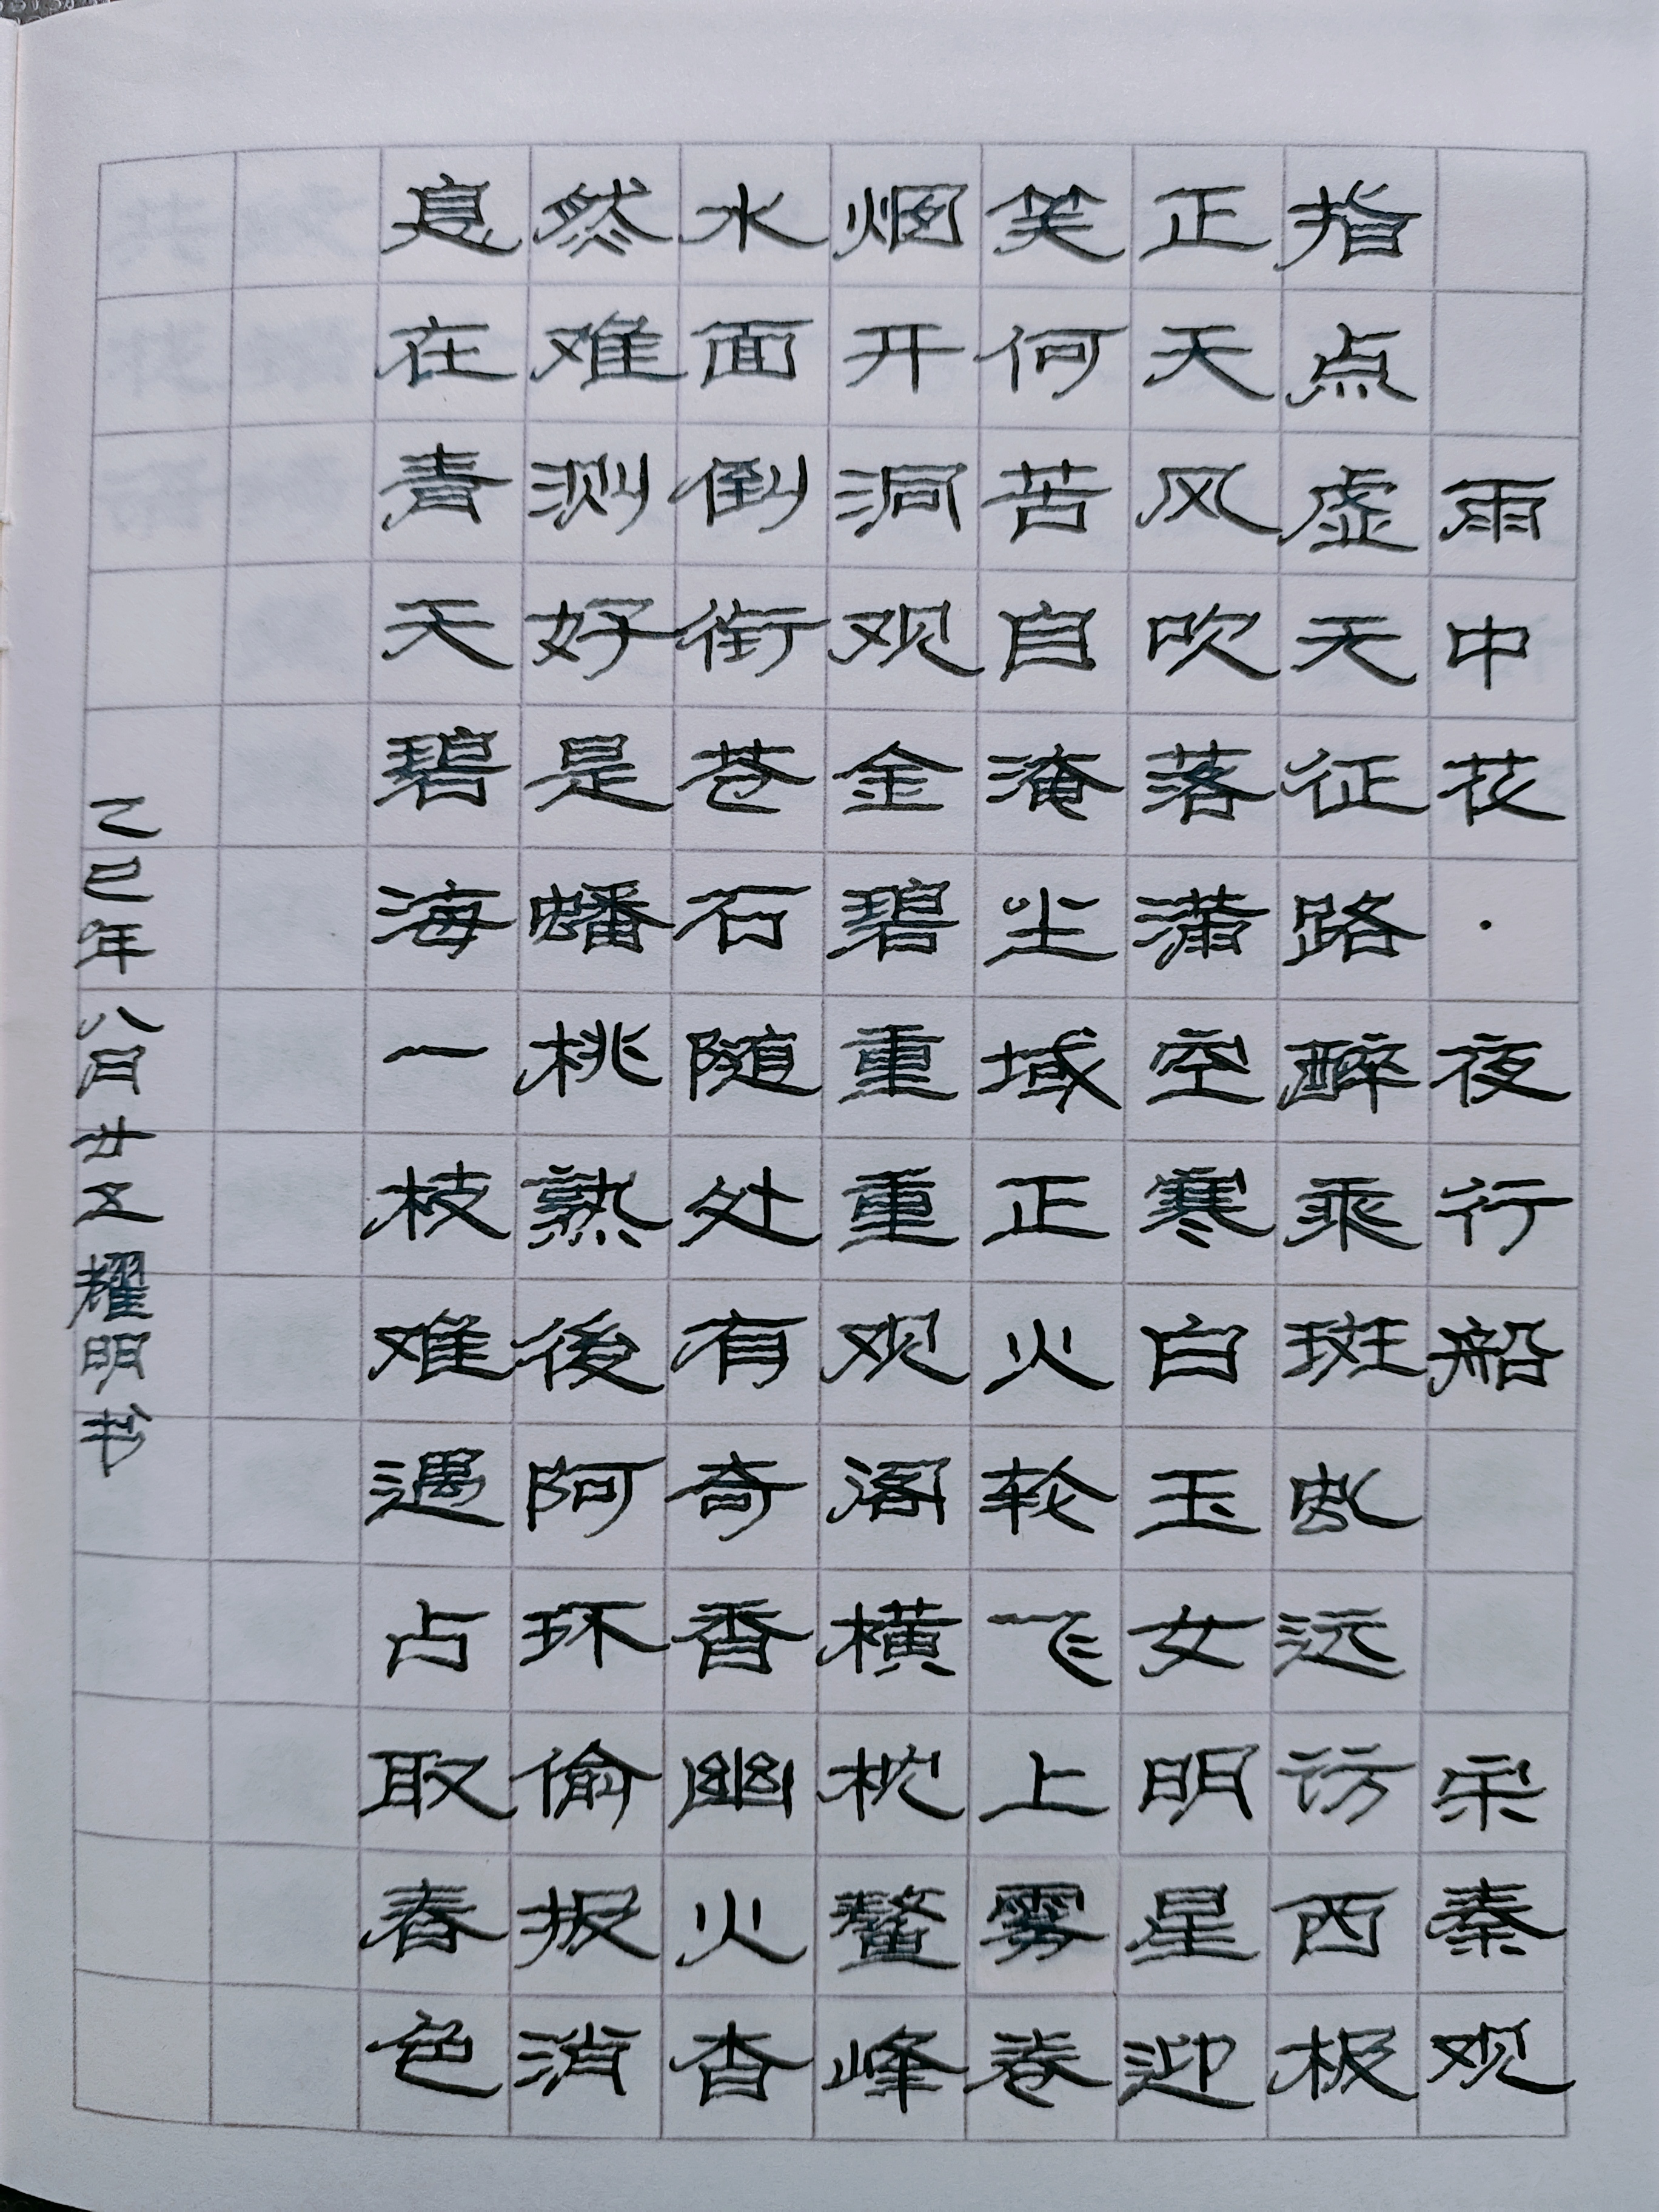 雨中花·夜行船 宋秦观
指点虚无征路醉乘斑虬远访西极
正天风吹落满空寒白玉女明星迎
笑何苦自淹尘域正火轮飞上雾卷
烟开洞观金碧重重观阁横枕鳌峰
水面倒衔苍石随处有奇香幽火杳
然难测好是蟠桃熟後阿环偷报消
息在青天碧海一枝难遇占取春色
乙巳年八月廿五耀明书